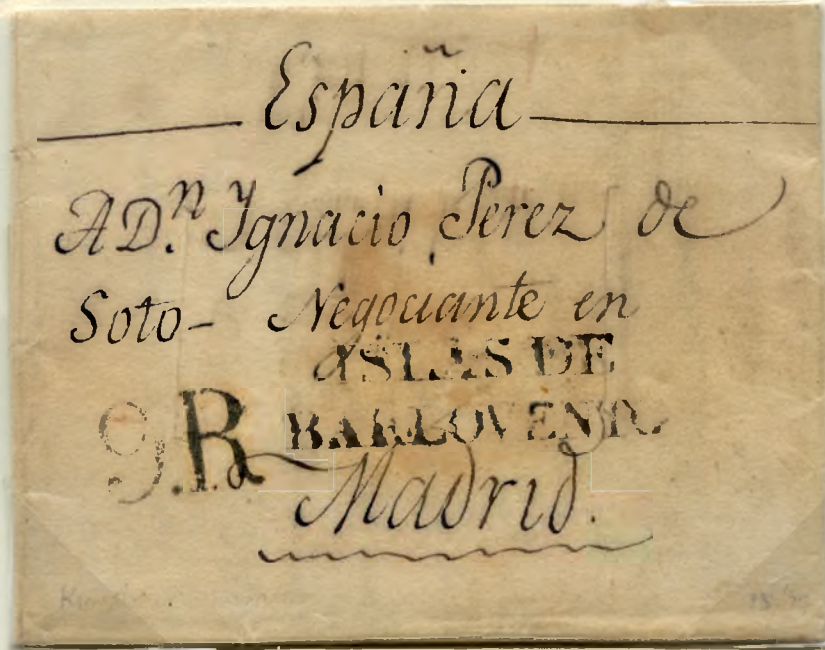 España
A D.ⁿ Ygnacio Perez de
Soto- Negociante en
YSLAS DE
BARLOVENTO
9.R
Madrid.